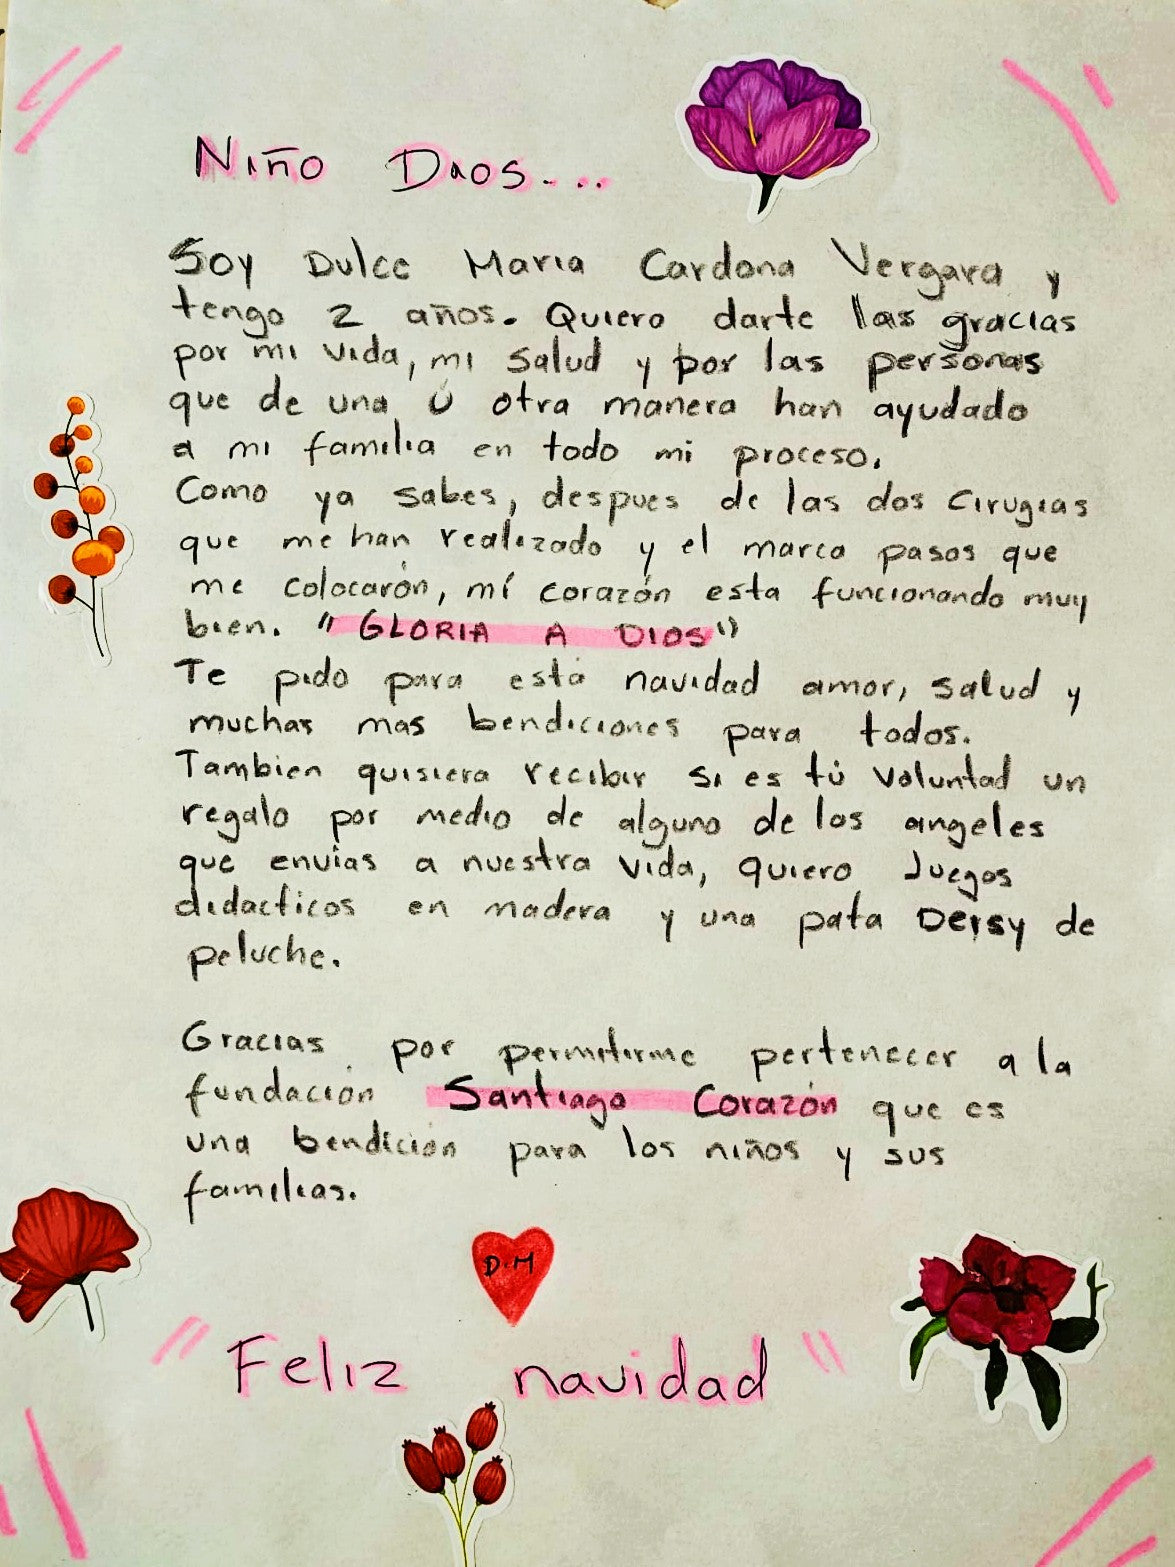 Niño Dios...
Soy Dulce Maria Cardona Vergara y
tengo 2 años. Quiero darte las gracias
por mi vida, mi salud y por las personas
que de una ú otra manera han ayudado
a mi familia en todo mi proceso.
Como ya sabes, despues de las dos cirugias
que me han realizado y el marca pasos que
me colocarón, mí corazón esta funcionando muy
bien. "GLORIA A DIOS"
Te pido para està navidad amor, salud y
muchas mas bendiciones para todos.
Tambien quisiera recibir si es tú voluntad un
regalo por medio de alguno de los angeles
que envías a nuestra vida, quiero Juegos
didacticos en madera y una pata Deisy de
peluche.
Gracias por permitirme pertenecer a la
fundación Santiago Corazón que es
una bendición para los niños y sus
familias.
D.M
"Feliz navidad"